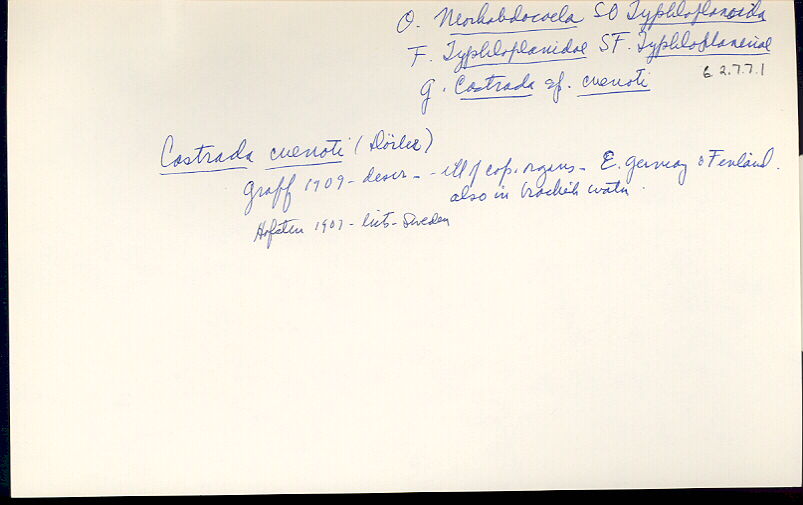 O. Neorhabdocoela SO Typhloplanoida
F. Typhloplanidae SF. Typhloplaninae
G. Castrada sp. cuenoti 6 2.7.7.1
Castrada cuenoti (Dörler)
Graff 1909 - descr - - ill of cop. organs - E. Germany & Finland.
also in brackish water.
Hofsten 1907 - lists - Sweden